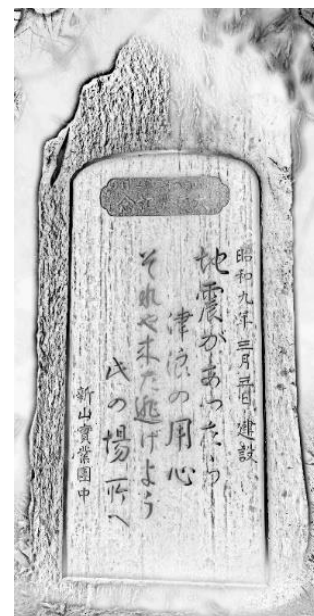 昭和九年三月三日 建設
地震があつたら
津浪の用心
それや来た逃げよう
此の場所へ
新山實業團中